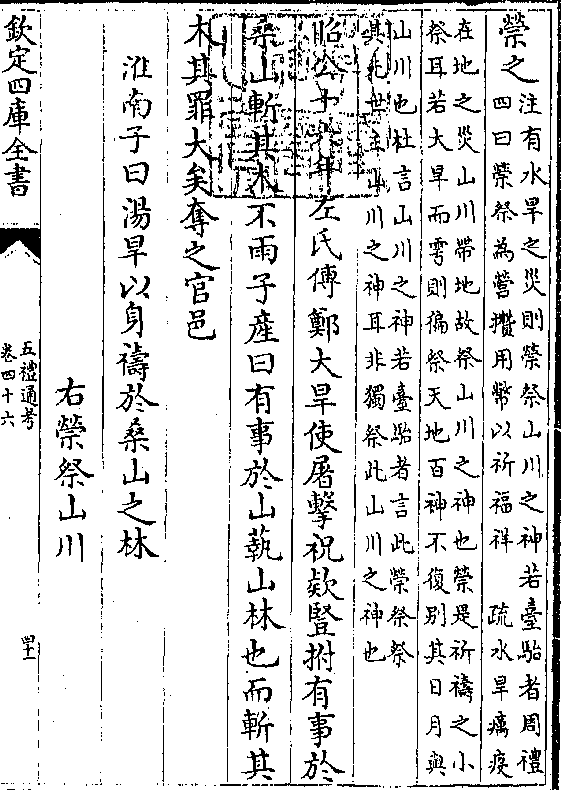 禜之 注有水旱之災則禜祭山川之神若臺駘者周禮
四曰禜祭為營攢用幣以祈福祥 疏水旱癘疫
在地之災山川帶地故祭山川之神也禜是祈禱之小
祭耳若大旱而雩則徧祭天地百神不復別其日月與
山川也杜言山川之神若臺駘者言此禜祭祭
其先世主山川之神耳非獨祭此山川之神也
昭公十六年左氏傳鄭大旱使屠擊祝款豎拊有事於
桑山斬其木不雨子產曰有事於山蓺山林也而斬其
木其罪大矣奪之官邑
淮南子曰湯旱以身禱於桑山之林
右禜祭山川
欽定四庫全書
五禮通考
卷四十六
四十一